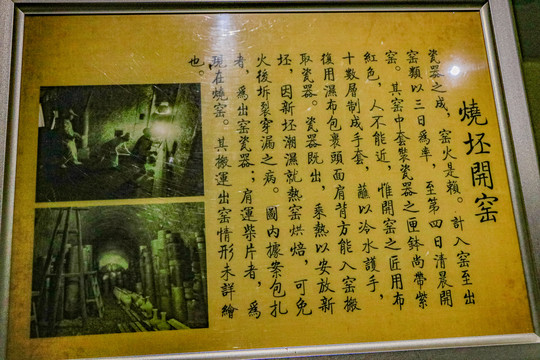 燒坯開窑
瓷器之成，窑火是賴。計入窑至出
窑類以三日爲率，至第四日清晨開
窑。其窑中套裝瓷器之匣鉢尚帶紫
紅色，人不能近，惟開窑之匠用布
十數層制成手套，蘸以冷水護手，
復用濕布包裹頭面肩背方能入窑搬
取瓷器。瓷器既出，乘熱以安放新
坯，因新坯潮濕就熱窑烘焙，可免
火後坼裂穿漏之病。圖内據案包扎
者，爲出窑瓷器；肩運柴片者，爲
現在燒窑。其搬運出窑情形未詳繪
也。